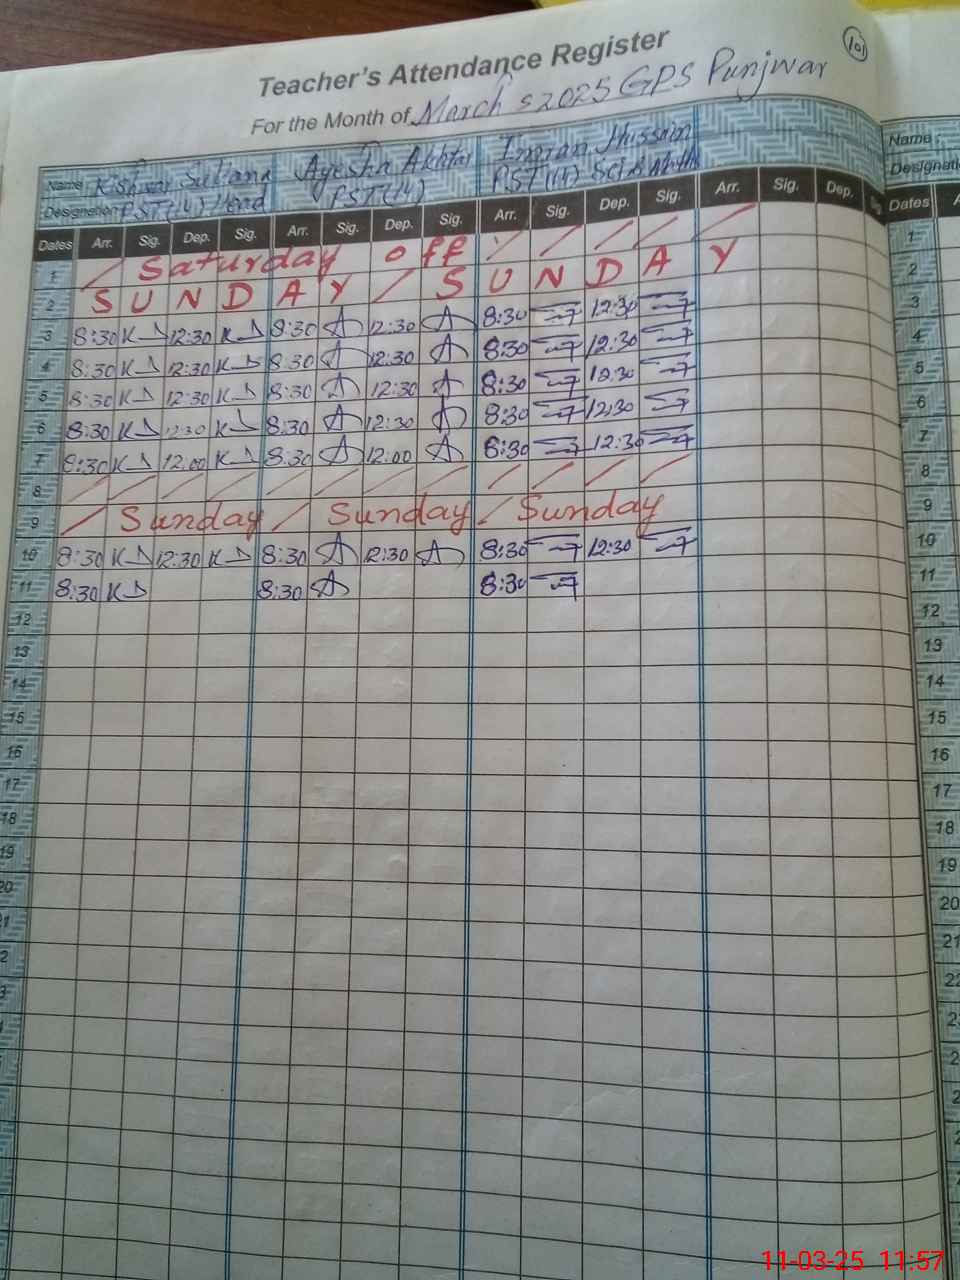 101
Teacher's Attendance Register
For the Month of March 2025 GPS Punjwar
Name: Kishwar Sultana Ayesha Akhtar Imran Hussain Name:
Designation PST(14) Head PST(14) PST(14) Sci & Math Designati
Dates Arr. Sig. Dep. Sig. Arr. Sig. Dep. Sig. Arr. Sig. Dep. Sig. Arr. Sig. Dep. Sig Dates A
1 / Saturday off / / / / / 1
2 S U N D A Y / S U N D A Y 2
3 8:30 12:30 8:30 A 12:30 A 8:30 12:30 3
4 8:30 12:30 8:30 A 12:30 A 8:30 12:30 4
5 8:30 12:30 8:30 A 12:30 A 8:30 12:30 5
6 8:30 12:30 8:30 A 12:30 A 8:30 12:30 6
7 8:30 12:00 8:30 A 12:00 A 8:30 12:30 7
8 / / / / / / / / / / / / 8
9 / Sunday / Sunday / Sunday 9
10 8:30 12:30 8:30 A 12:30 A 8:30 12:30 10
11 8:30 8:30 A 8:30 11
12 12
13 13
14 14
15 15
16 16
17 17
18 18
19 19
20 20
1 21
2 22
3
11-03-25 11:57